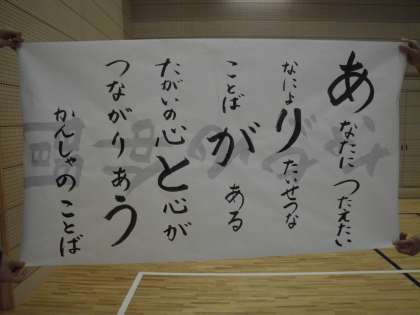 あなたにつたえたい
なによりたいせつな
ことばがある
たがいの心と心が
つながりあう
かんしゃのことば